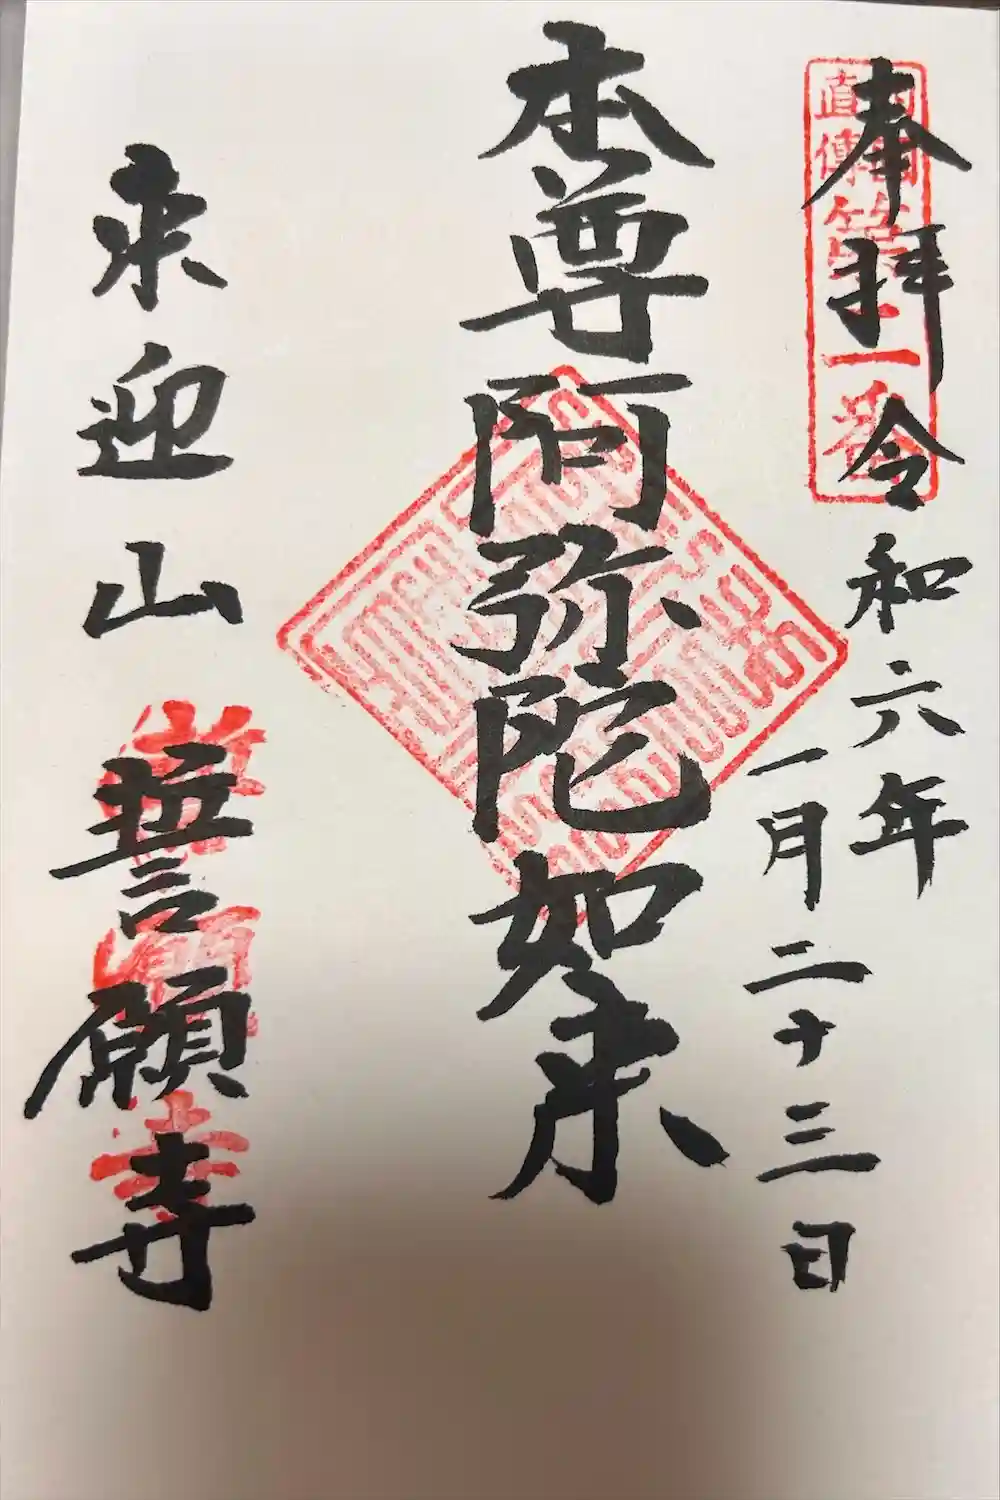 奉拝 令和六年
一月二十三日
本尊阿弥陀如来
来迎山 誓願寺
直傳
番
誓願寺